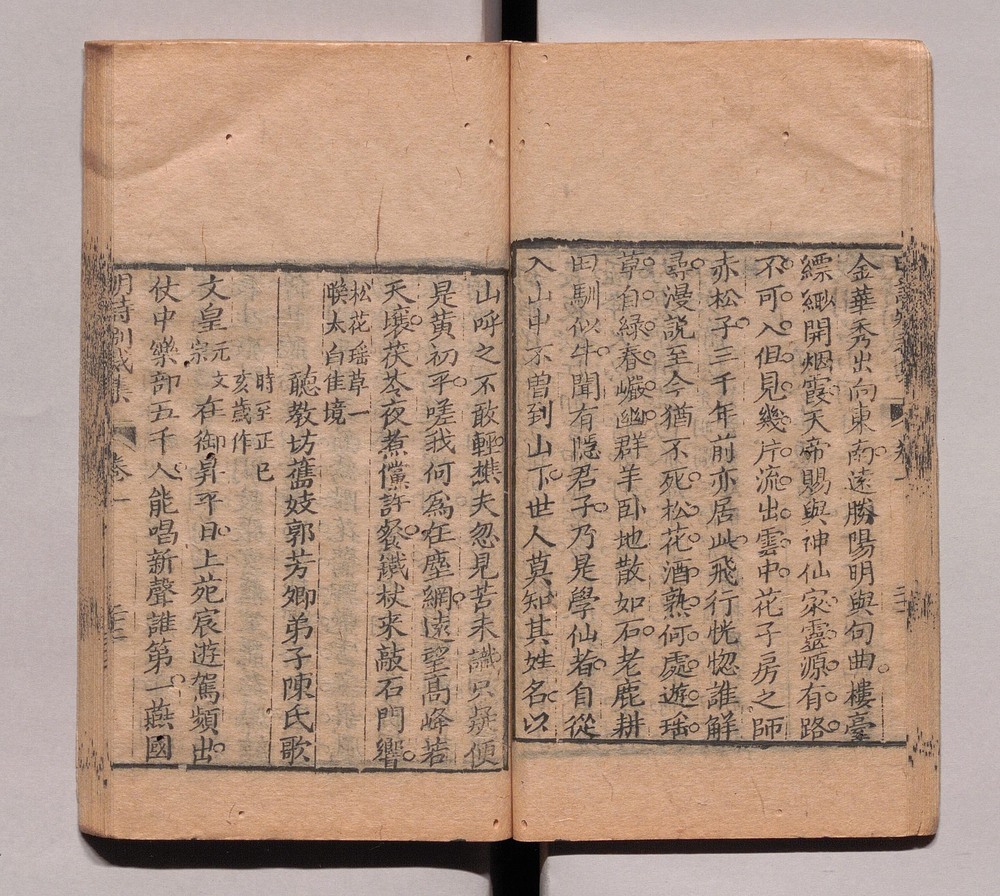 金華秀出向東南遠勝陽明與句曲樓臺
縹緲開烟霞天帝賜與神仙家靈源有路
不可入但見幾片流出雲中花子房之師
赤松子三千年前亦居此飛行恍惚誰解
尋漫說至今猶不死松花酒熟何處遊瑶
草自綠春巖幽群羊卧地散如石老鹿耕
田馴似牛聞有隱君子乃是學仙者自從
入山中不曾到山下世人莫知其姓名以
山呼之不敢輕樵夫忽見苦未識只疑便
是黃初平嗟我何爲在塵網遠望高峰若
天壤茯苓夜煮儻許餐鐵杖来敲石門響
松花瑶草一
睽太白佳境
聽教坊舊妓郭芳卿弟子陳氏歌
時至正己
亥歲作
文皇元文宗在御昇平日上苑宸遊駕頻出
仗中樂部五千人能唱新聲誰第一燕國
明詩別裁集
卷一